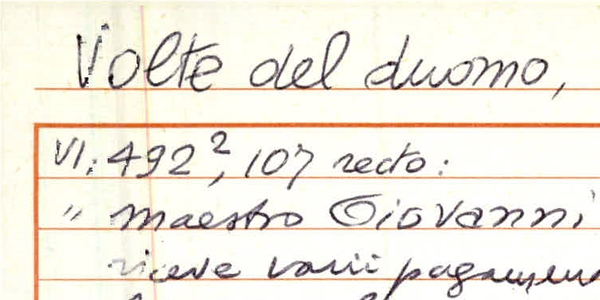 Volte del duomo,
VI: 492², 107 recto:
" maestro Giovanni
riceve varii